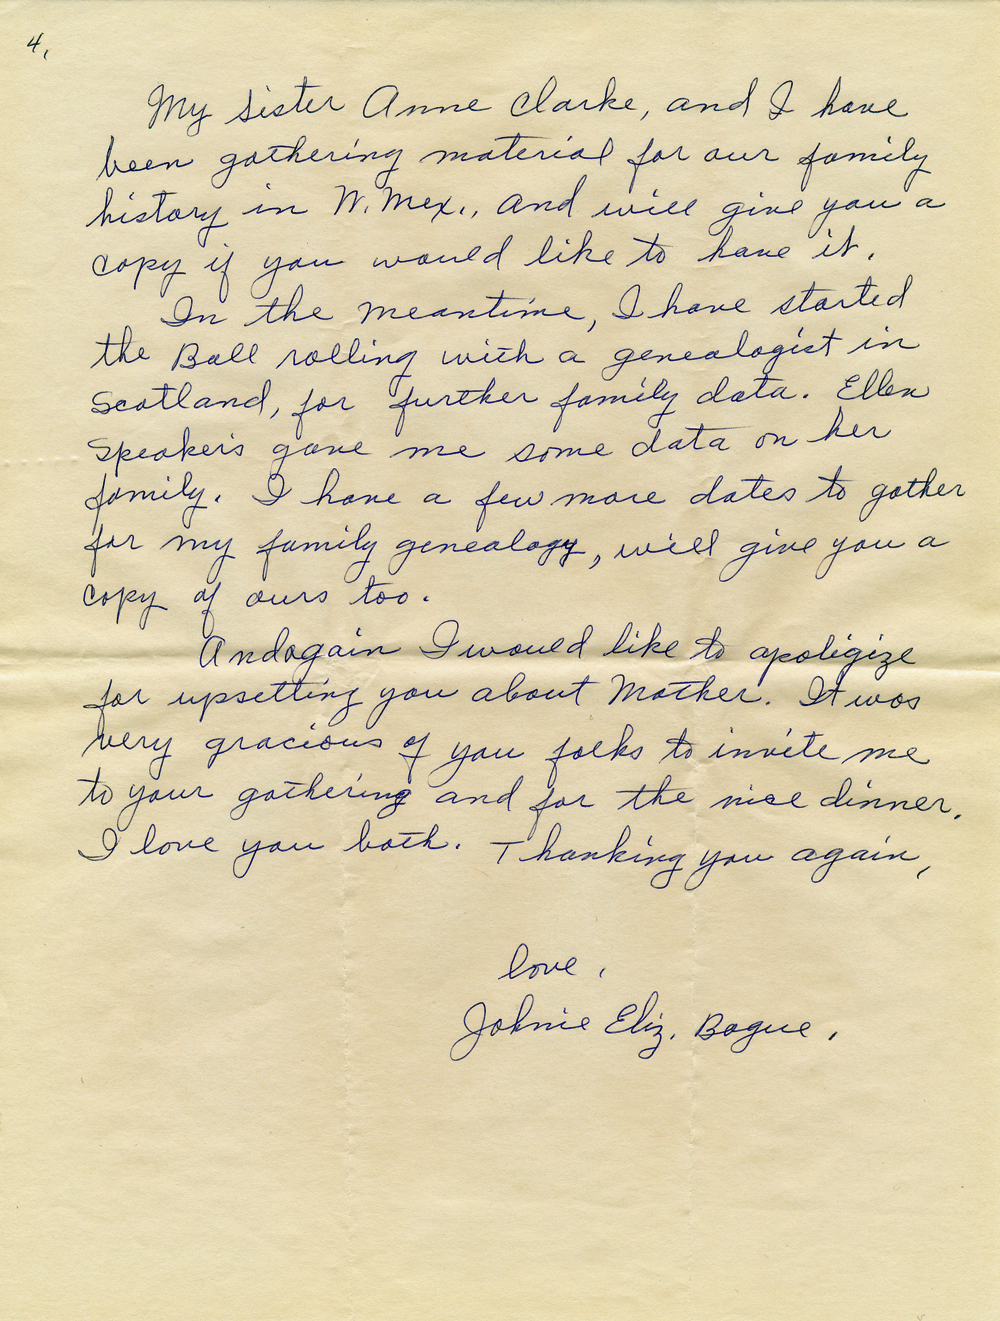 4,
My sister Anne Clarke, and I have
been gathering material for our family
history in N. Mex., and will give you a
copy if you would like to have it.
In the meantime, I have started
the Ball rolling with a genealogist in
Scotland, for further family data. Ellen
Speakers gave me some data on her
family. I have a few more dates to gather
for my family genealogy, will give you a
copy of ours too.
And again I would like to apoligize
for upsetting you about Mother. It was
very gracious of you folks to invite me
to your gathering and for the nice dinner.
I love you both. Thanking you again,
love,
Johnie Eliz. Bogue.